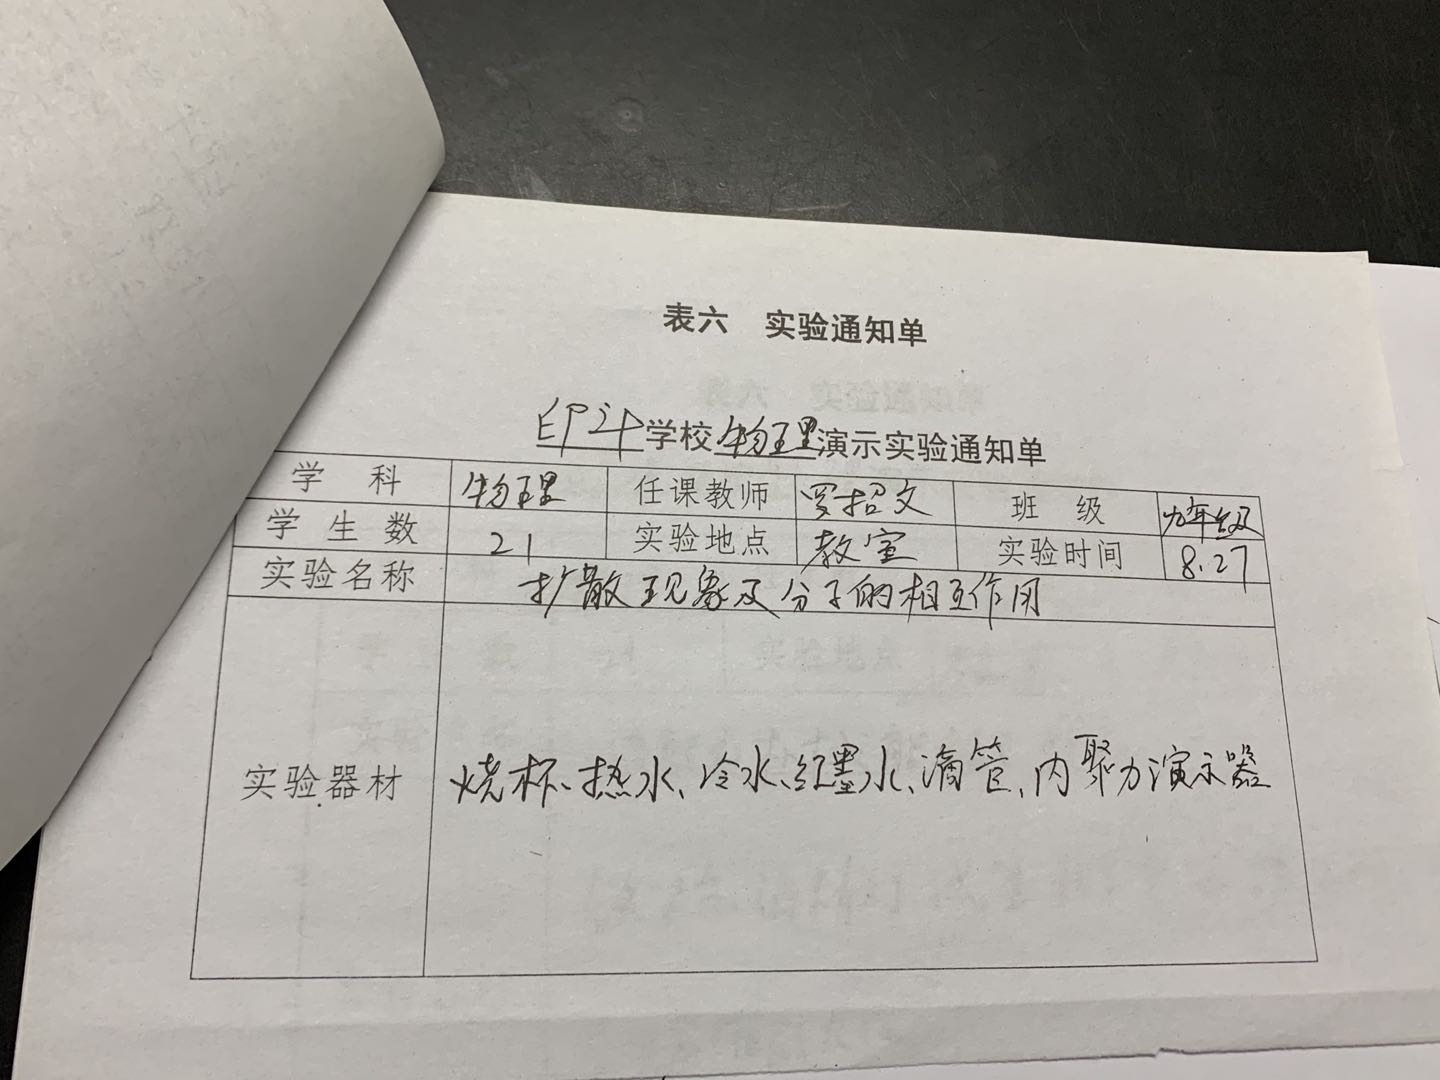 表六 实验通知单
印斗学校物理演示实验通知单
学科 物理 任课教师 罗招文 班级 九年级
学生数 21 实验地点 教室 实验时间 8.27
实验名称 扩散现象及分子的相互作用
实验器材 烧杯、热水、冷水、红墨水、滴管、内聚力演示器